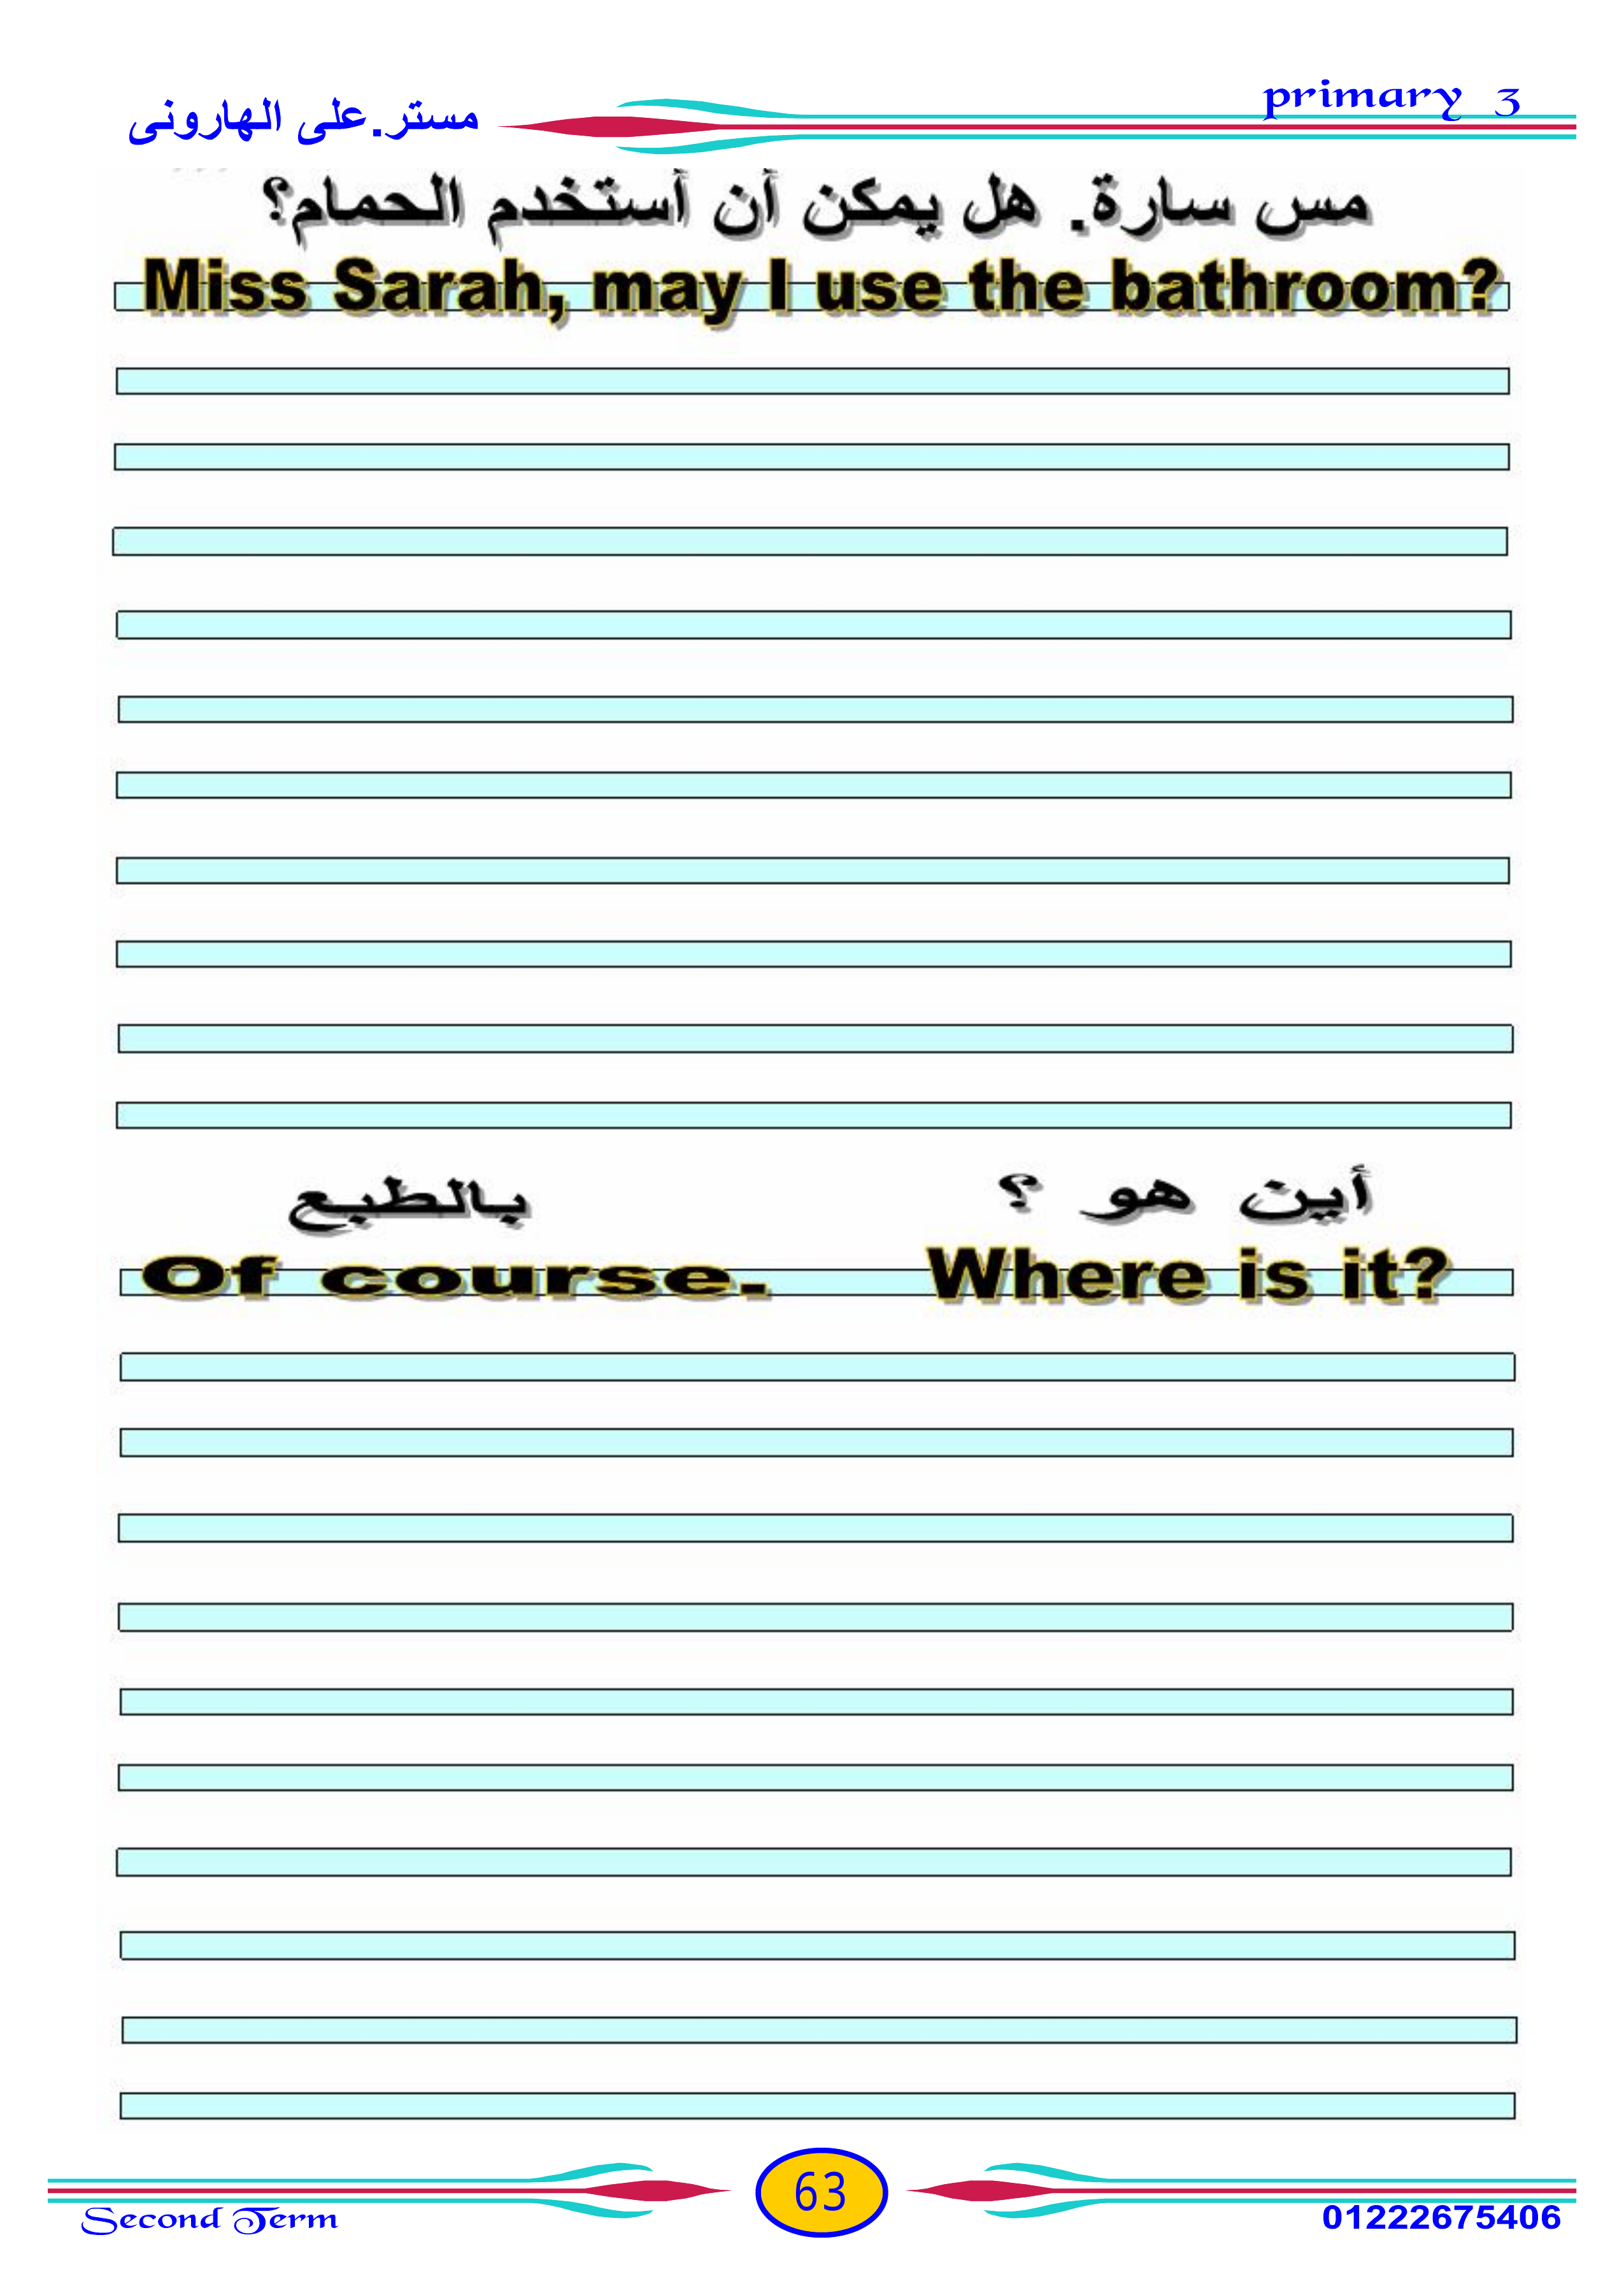 مستر.على الهارونى
primary 3
مس سارة. هل يمكن أن أستخدم الحمام؟
Miss Sarah, may I use the bathroom?
أين هو ؟
بالطبع
Of course.
Where is it?
Second Term
63
01222675406